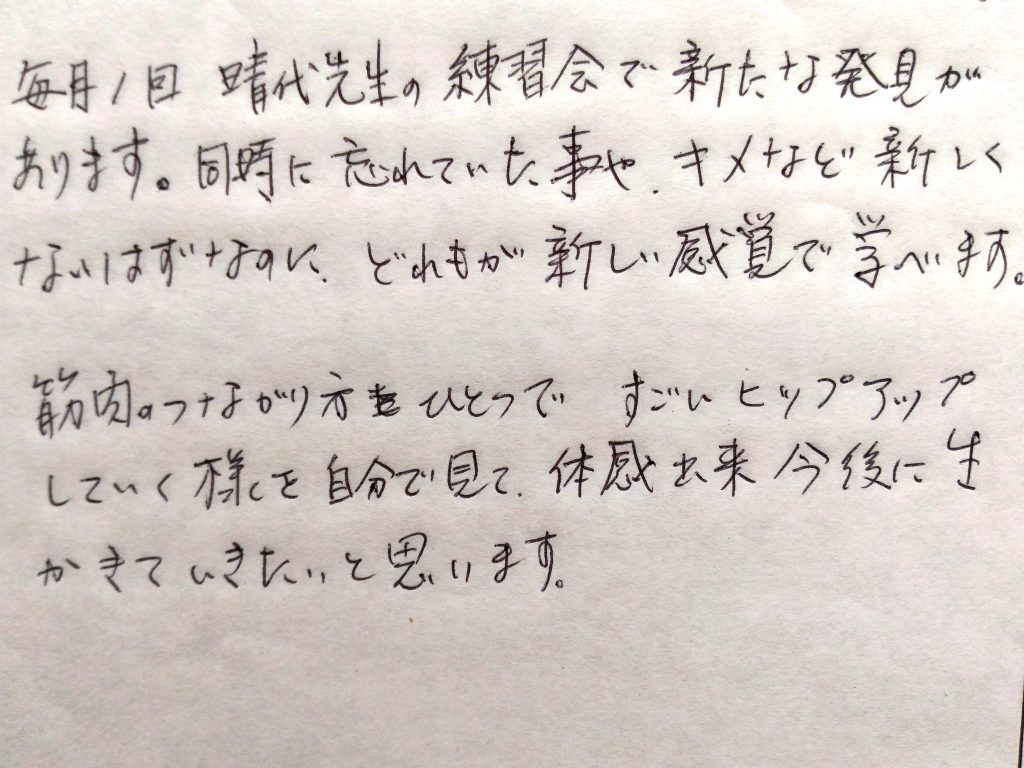 毎月1回 晴代先生の練習会で新たな発見が
あります。同時に忘れていた事や、キメなど新しく
ないはずなのに、どれもが新しい感覚で学べます。
筋肉のつながり方ひとつで すごいヒップアップ
していく様を自分で見て、体感出来 今後に生
かきていきたいと思います。